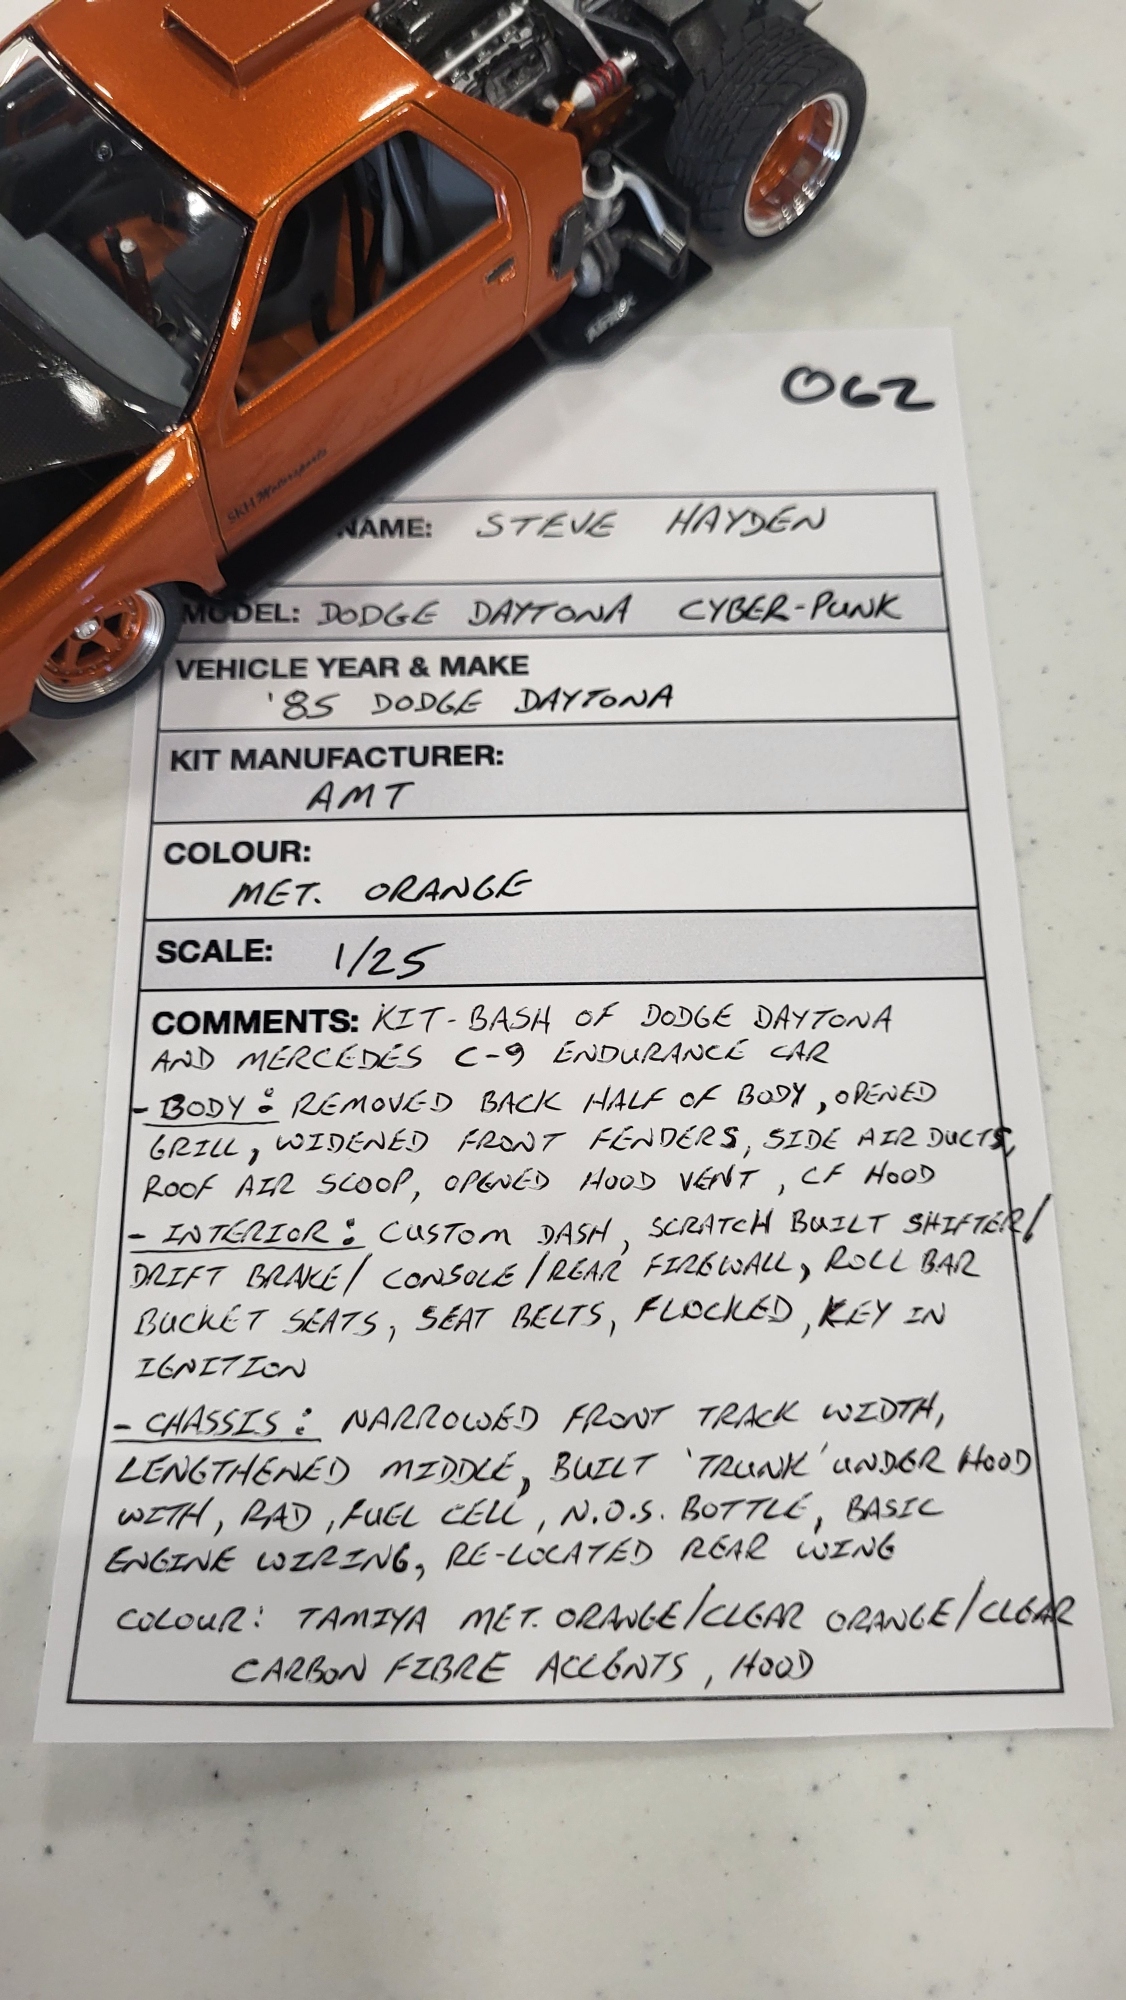 SKH Motorsports
062
NAME: STEVE HAYDEN
MODEL: DODGE DAYTONA CYBER-PUNK
VEHICLE YEAR & MAKE
'85 DODGE DAYTONA
KIT MANUFACTURER:
AMT
COLOUR:
MET. ORANGE
SCALE: 1/25
COMMENTS: KIT-BASH OF DODGE DAYTONA
AND MERCEDES C-9 ENDURANCE CAR
- BODY: REMOVED BACK HALF OF BODY, OPENED
GRILL, WIDENED FRONT FENDERS, SIDE AIR DUCTS,
ROOF AIR SCOOP, OPENED HOOD VENT, CF HOOD
- INTERIOR: CUSTOM DASH, SCRATCH BUILT SHIFTER/
DRIFT BRAKE/ CONSOLE/REAR FIREWALL, ROLL BAR
BUCKET SEATS, SEAT BELTS, FLOCKED, KEY IN
IGNITION
- CHASSIS: NARROWED FRONT TRACK WIDTH,
LENGTHENED MIDDLE, BUILT 'TRUNK' UNDER HOOD
WITH, RAD, FUEL CELL, N.O.S. BOTTLE, BASIC
ENGINE WIRING, RE-LOCATED REAR WING
COLOUR: TAMIYA MET. ORANGE/CLEAR ORANGE/CLEAR
CARBON FIBRE ACCENTS, HOOD